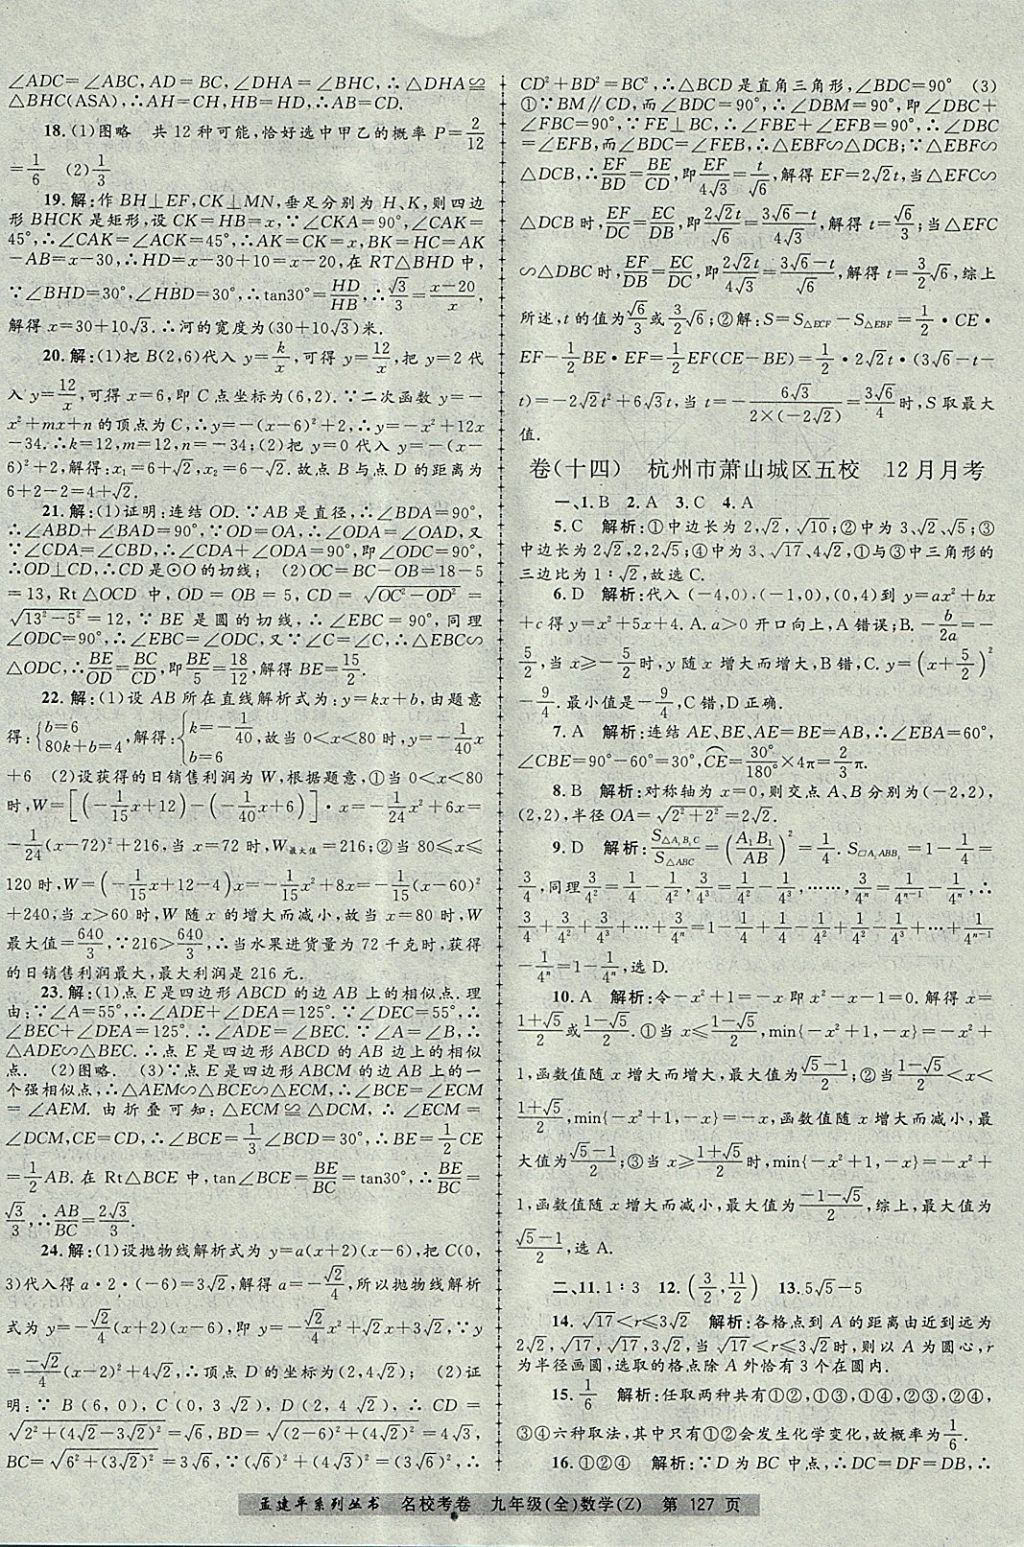 ∠ADC=∠ABC,AD=BC,∠DHA=∠BHC,∴△DHA≌
△BHC(ASA),∴AH=CH,HB=HD,∴AB=CD.
18.(1)图略 共12种可能,恰好选中甲乙的概率P=2/12
=1/6 (2)1/3
19.解:作BH⊥EF,CK⊥MN,垂足分别为H、K,则四边
形BHCK是矩形,设CK=HB=x,∵∠CKA=90°,∠CAK=
45°,∴∠CAK=∠ACK=45°,∴AK=CK=x,BK=HC=AK
-AB=x-30,∴HD=x-30+10=x-20,在RT△BHD中,
∵∠BHD=30°,∠HBD=30°,∴tan30°=HD/HB,∴√3/3=(x-20)/x,
解得x=30+10√3.∴河的宽度为(30+10√3)米.
20.解:(1)把B(2,6)代入y=k/x,可得y=12/x,把y=2代
入y=12/x,可得x=6,即C点坐标为(6,2).∵二次函数y=-
x²+mx+n的顶点为C,∴y=-(x-6)²+2,∴y=-x²+12x
-34.∴k=12,m=12,n=-34;(2)把y=0代入y=-(x-
6)²+2,解得:x₁=6+√2,x₂=6-√2.故点B与点D的距离为
6+2-2=4+√2.
21.(1)证明:连结OD.∵AB是直径,∴∠BDA=90°,
∴∠ABD+∠BAD=90°,∵OD=OA,∴∠ODA=∠OAD,又
∵∠CDA=∠CBD,∴∠CDA+∠ODA=90°,即∠ODC=90°,
∴OD⊥CD,∴CD是⊙O的切线;(2)OC=BC-OB=18-5
=13,Rt△OCD中,OD=OB=5,CD=√(OC²-OD²)=
√(13²-5²)=12,∵BE是圆的切线,∴∠EBC=90°,同理
∠ODC=90°,∴∠EBC=∠ODC,又∵∠C=∠C,∴△EBC∽
△ODC,∴BE/OD=BC/CD,即BE/5=18/12,解得BE=15/2.
22.解:(1)设AB所在直线解析式为:y=kx+b,由题意
得:{b=6 80k+b=4,解得:{k=-1/40 b=6,故当0<x<80时,y=-1/40x
+6 (2)设获得的日销售利润为W,根据题意,①当0<x<80
时,W=[(-1/15x+12)-(-1/40x+6)]·x=-1/24x²+6x=
-1/24(x-72)²+216,当x=72时,W最大值=216;②当80≤x≤
120时,W=(-1/15x+12-4)x=-1/15x²+8x=-1/15(x-60)²
+240,当x>60时,W随x的增大而减小,故当x=80时,W
最大值=640/3,∵216>640/3,∴当水果进货量为72千克时,获得
的日销售利润最大,最大利润是216元.
23.解:(1)点E是四边形ABCD的边AB上的相似点.理
由:∵∠A=55°,∴∠ADE+∠DEA=125°.∵∠DEC=55°,∴
∠BEC+∠DEA=125°.∴∠ADE=∠BEC.∵∠A=∠B,∴
△ADE∽△BEC.∴点E是四边形ABCD的AB边上的相似
点. (2)图略. (3)∵点E是四边形ABCM的边AB上的一
个强相似点,∴△AEM∽△BCE∽△ECM,∴∠BCE=∠ECM
=∠AEM.由折叠可知:△ECM≌△DCM,∴∠ECM=
∠DCM,CE=CD,∴∠BCE=1/3∠BCD=30°,∴BE=1/2CE
=1/2AB.在Rt△BCE中,tan∠BCE=BE/BC=tan30°,∴BE/BC=
√3/3,∴AB/BC=2√3/3.
24.解:(1)设抛物线解析式为y=a(x+2)(x-6),把C(0,
3)代入得a·2·(-6)=3√2,解得a=-√2/4,所以抛物线解析
式为y=-√2/4(x+2)(x-6),即y=-√2/4x²+√2x+3√2,∵y
=-√2/4(x-2)²+4√2,∴顶点D的坐标为(2,4√2); (2)证
明:∵B(6,0),C(0,3√2),D(2,4√2),∴CD=
√(2²+(4√2-3√2)²)=√6,BD=√((2-6)²+(4√2)²)=4√3,
BC=√(6²+(3√2)²)=3√6,∵(√6)²+(4√3)²=(3√6)²,∴
CD²+BD²=BC²,∴△BCD是直角三角形,∠BDC=90° (3)
①∵BM∥CD,而∠BDC=90°,∴∠DBM=90°,即∠DBC+
∠FBC=90°,∵FE⊥BC,∴∠FBE+∠EFB=90°,∴∠DBC
=∠EFB,而∠BDC=∠FEB,∴△EBF∽△DCB;∵△EBF∽△
DCB,∴EF/BD=BE/CD,即EF/4√3=t/√6,解得EF=2√2t,当△EFC∽
△DCB时,EF/DC=BE/DB,即2√2t/√6=(3√6-t)/4√3,解得t=√6/3;当△EFC
∽△DBC时,EF/DB=EC/DC,即2√2t/4√3=(3√6-t)/√6,解得t=3/2√6,综上
所述,t的值为√6/3或3/2√6;②解:S=S△ECF-S△EBF=1/2·CE·
EF-1/2BE·EF=1/2EF(CE-BE)=1/2·2√2t·(3√6-t-
t)=-2√2t²+6√3t,当t=-6√3/(2×(-2√2))=3√6/4时,S取最大
值.
卷(十四) 杭州市萧山城区五校 12月月考
一、1.B 2.A 3.C 4.A
5.C 解析:①中边长为2,√2,√10;②中为3,√2,√5;③
中边长为2√2,2,2√5;④中为3、√17、4√2,①与③中三角形的
三边比为1∶√2,故选C.
6.D 解析:代入(-4,0).(-1,0),(0,4)到y=ax²+bx
+c得y=x²+5x+4.A.a>0开口向上,A错误;B.-b/2a=-
5/2,当x≥-5/2时,y随x增大而增大,B错,C.y=(x+5/2)²
-9/4.最小值是-9/4,C错,D正确.
7.A 解析:连结AE、BE、AE=BE=AB,∴∠EBA=60°,
∠CBE=90°-60°=30°,CE⌒=30°/180°×4π=2/3π.
8.B 解析:对称轴为x=0,则交点A、B分别为(-2,2),
(2,2),半径OA=√(2²+2²)=2√2.
9.D 解析:S△A₁B₁C/S△ABC=(A₁B₁/AB)²=1/4.S□A₁ABB₁=1-1/4=
3/4,同理3/4²=1/4-1/4²,3/4³=1/4²-1/4³,……,3/4ⁿ=1/4ⁿ⁻¹-1/4ⁿ,∴
3/4+3/4²+3/4³+…+3/4ⁿ=1-1/4+1/4-1/4²+1/4²-1/4³+…+1/4ⁿ⁻¹
-1/4ⁿ=1-1/4ⁿ,选D.
10.A 解析:令-x²+1=-x即x²-x-1=0.解得x=
(1+√5)/2或(1-√5)/2.①当x≤(1-√5)/2时,min{-x²+1,-x}=-x²+
1,函数值随x增大而增大,最大值为(√5-1)/2;②当(1-√5)/2<x<
(1+√5)/2时,min{-x²+1,-x}=-x,函数值随x增大而减小,最
大值为(√5-1)/2;③当x≥(1+√5)/2时,min{-x²+1,-x}=-x²+
1,函数值随x增大而减小,最大值为(-1-√5)/2,综上,最大值为
(√5-1)/2,选A.
二、11.1∶3 12.(3/2,11/2) 13.5√5-5
14.√17<r≤3√2 解析:各格点到A的距离由近到远为
2√2,√17,√17,3√2,当√17<r≤3√2时,以A为圆心,r
为半径画圆,选取的格点除A外恰有3个在圆内.
15.1/6 解析:任取两种共有①②,①③,①④,②③,②④,
③④六种取法,其中只有①②会发生化学变化,故概率为1/6.
16.①②④ 解析:∵AF=DC=DF=DB,∴
孟建平系列丛书 名校考卷 九年级(全)数学(Z) 第 127 页